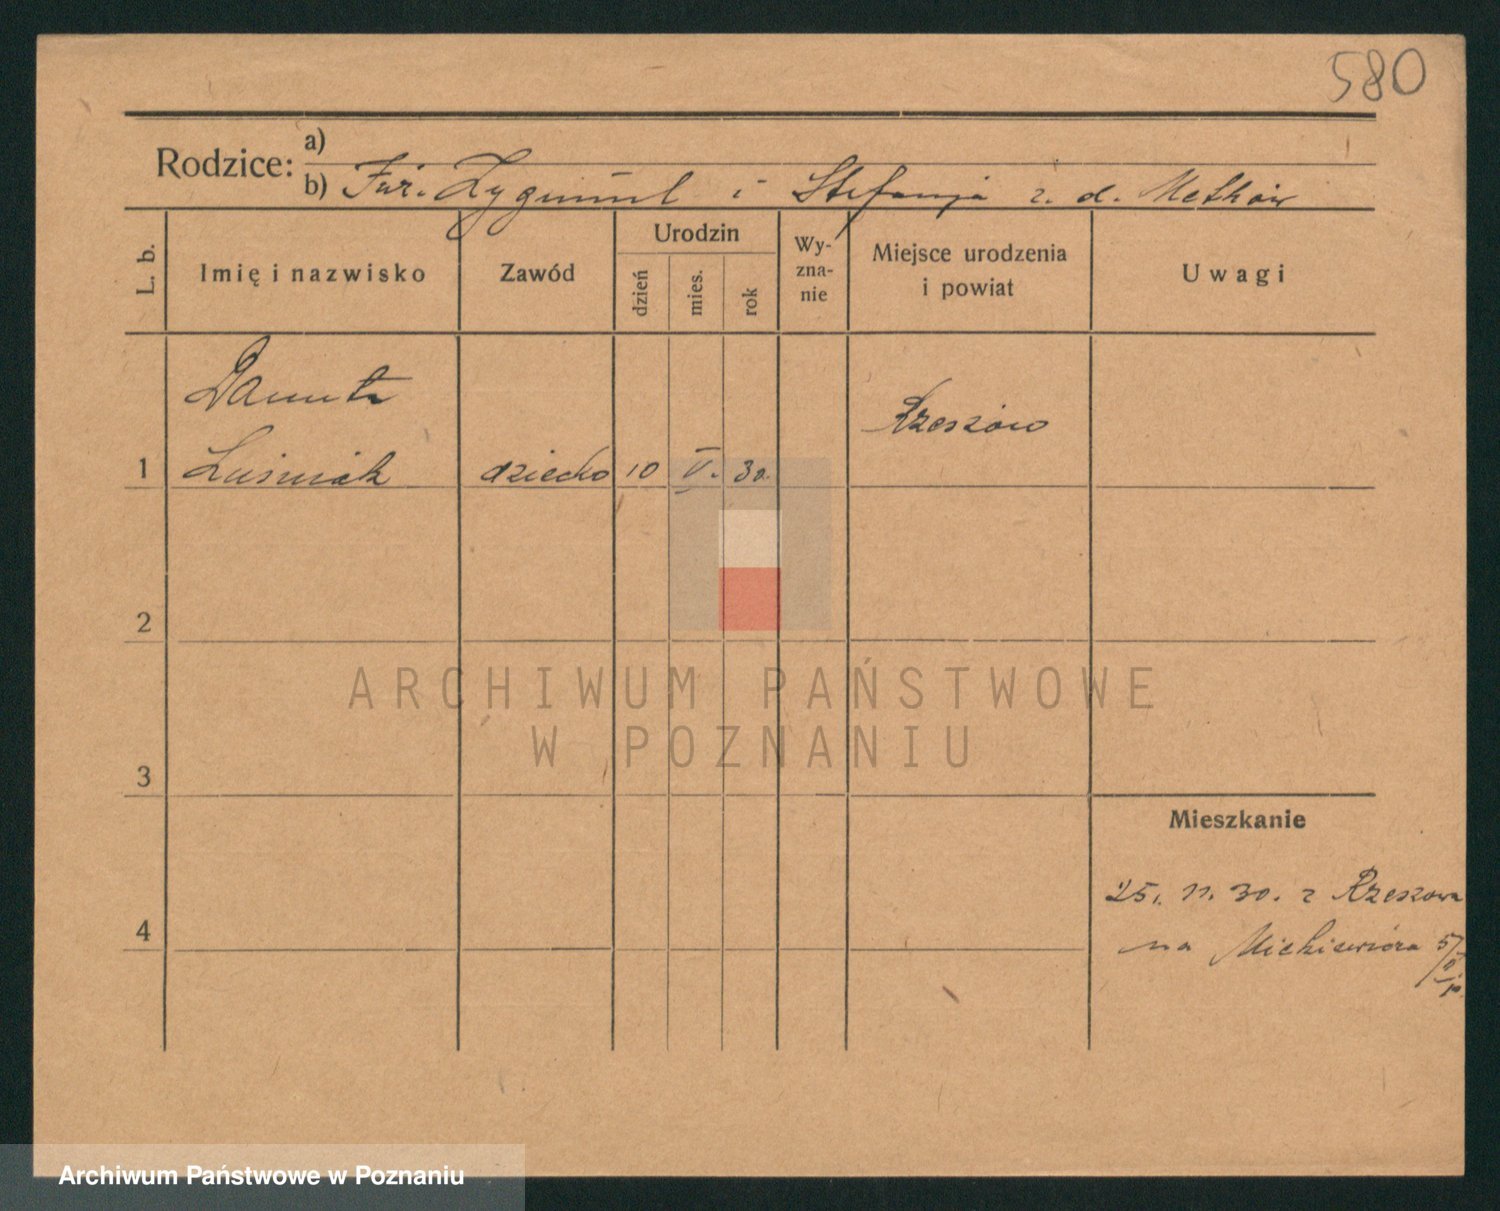 580
Rodzice: a)
b) Zygmunt i Stefanja z. d.
L. b. Imię i nazwisko Zawód Urodzin dzień mies. rok Wy-zna-nie Miejsce urodzenia i powiat Uwagi
Danuta
Rzeszów
1 Luśniak dziecko 10 V. 30.
2
ARCHIWUM PAŃSTWOWE
W POZNANIU
3
Mieszkanie
25. 11. 30. z Rzeszowa
4
na Mickiewicza
Archiwum Państwowe w Poznaniu